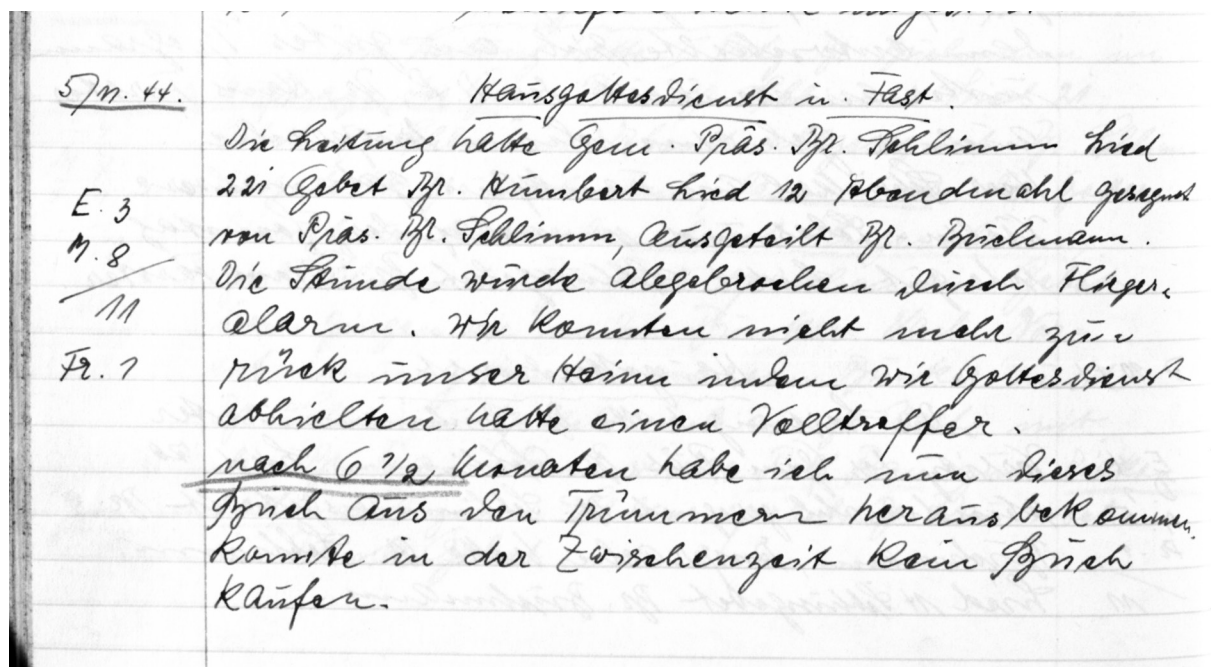 5/11. 44.
Hausgottesdienst u. Fast.
Die Leitung hatte Gem. Präs. Br. Schlimm Lied
221 Gebet Br. Humbert Lied 12 Abendmahl gesegnet
von Präs. Br. Schlimm, Ausgeteilt Br. Buchmann.
Die Stunde wurde abgebrochen durch Flieger-
alarm. Wir konnten nicht mehr zu-
rück unser Heim indem wir Gottesdienst
abhielten hatte einen Volltreffer.
nach 6 1/2 Monaten habe ich nun dieses
Buch aus den Trümmern herausbekommen.
konnte in der Zwischenzeit kein Buch
kaufen.
E. 3
M. 8
11
Fr. 1